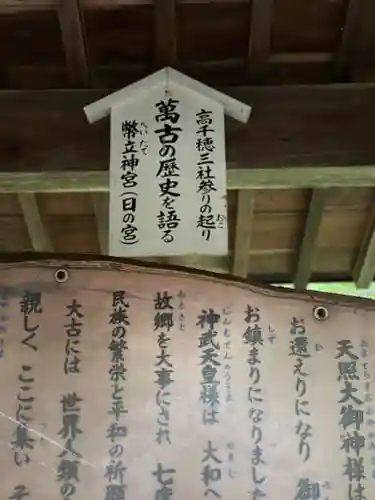 高千穂三社参りの起り
萬古の歴史を語る
幣立神宮(日の宮)
天照大御神様は
お還えりになり 御
お鎮まりになりまし
神武天皇様は 大和へ
故郷を大事にされ 七度
民族の繁栄と平和の祈願
大古には 世界人類の
親しく ここに集い そ